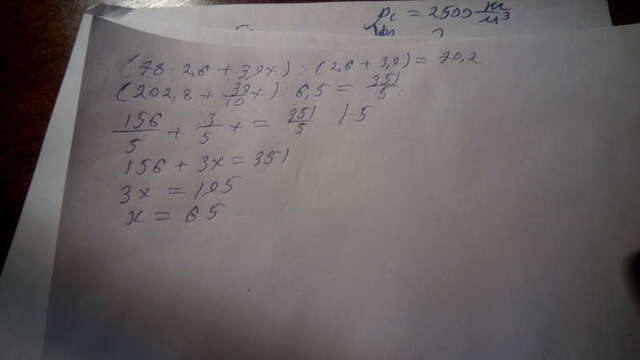 ρс = 2500 м/м³
(78 · 2,6 + 3,9x) : (2,6 + 3,9) = 70,2
(202,8 + 39/10 x) : 6,5 = 351/5
156/5 + 3/5 x = 351/5 | · 5
156 + 3x = 351
3x = 195
x = 65